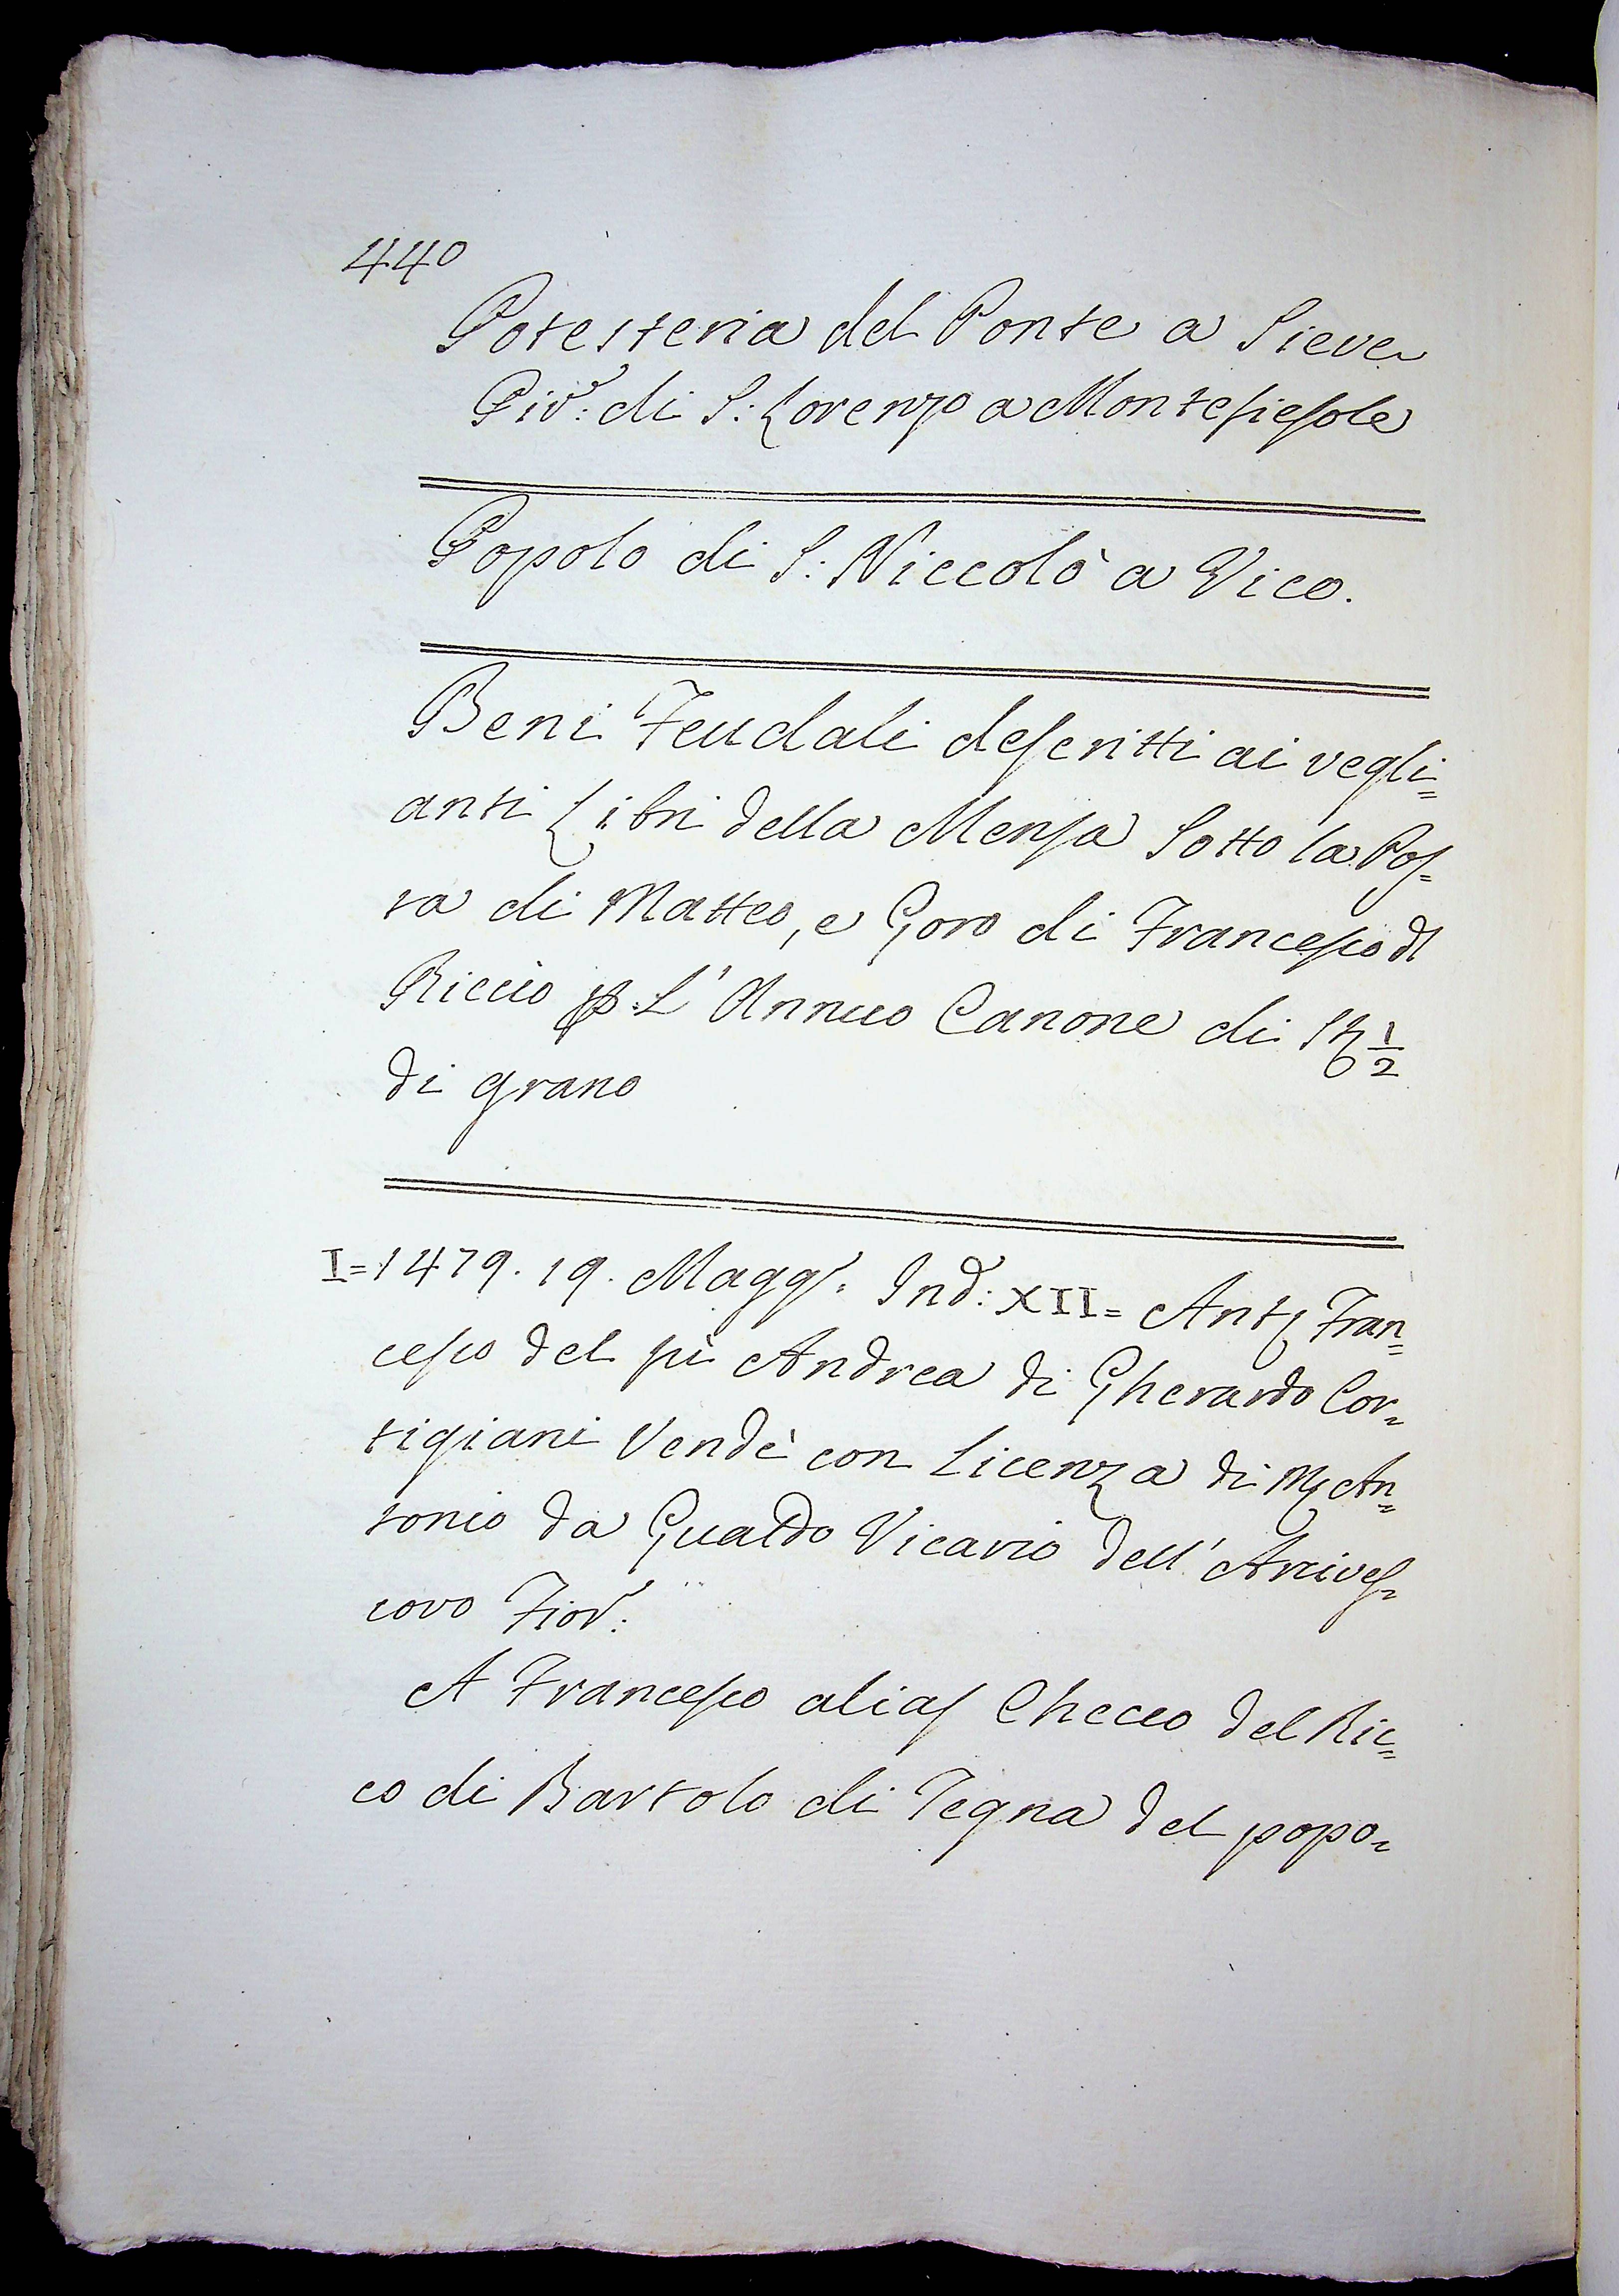 440
Potesteria del Ponte a Sieve
Piv.e: di S: Lorenzo a Montefiesole
Popolo di S: Niccolò a Vico.
Beni Feudali descritti ai vegli=
anti Libri della Mensa Sotto la Pos=
ta di Matteo, e Goro di Francesco di
Riccio p L' Annuo Canone di St 1/2
di grano
I=1479. 19. Magg. Ind: XII= Ant. Fran=
cesco del fù Andrea di Gherardo Cor=
tigiani Vendè con Licenza di M. An=
tonio da Gualdo Vicario dell' Arcives=
covo Fior:
A Francesco alias Checco del Ric=
co di Bartolo di Tegna del popo=